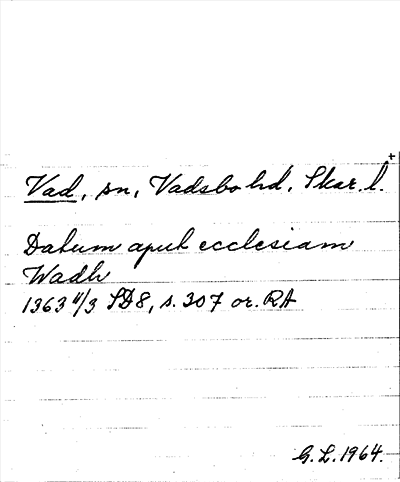 Vad, sn, Vadsbo hd, Skar. l.
Datum apud ecclesiam
Wadh
1363 11/3 SD8, s. 307 or. RA
G. L. 1964.